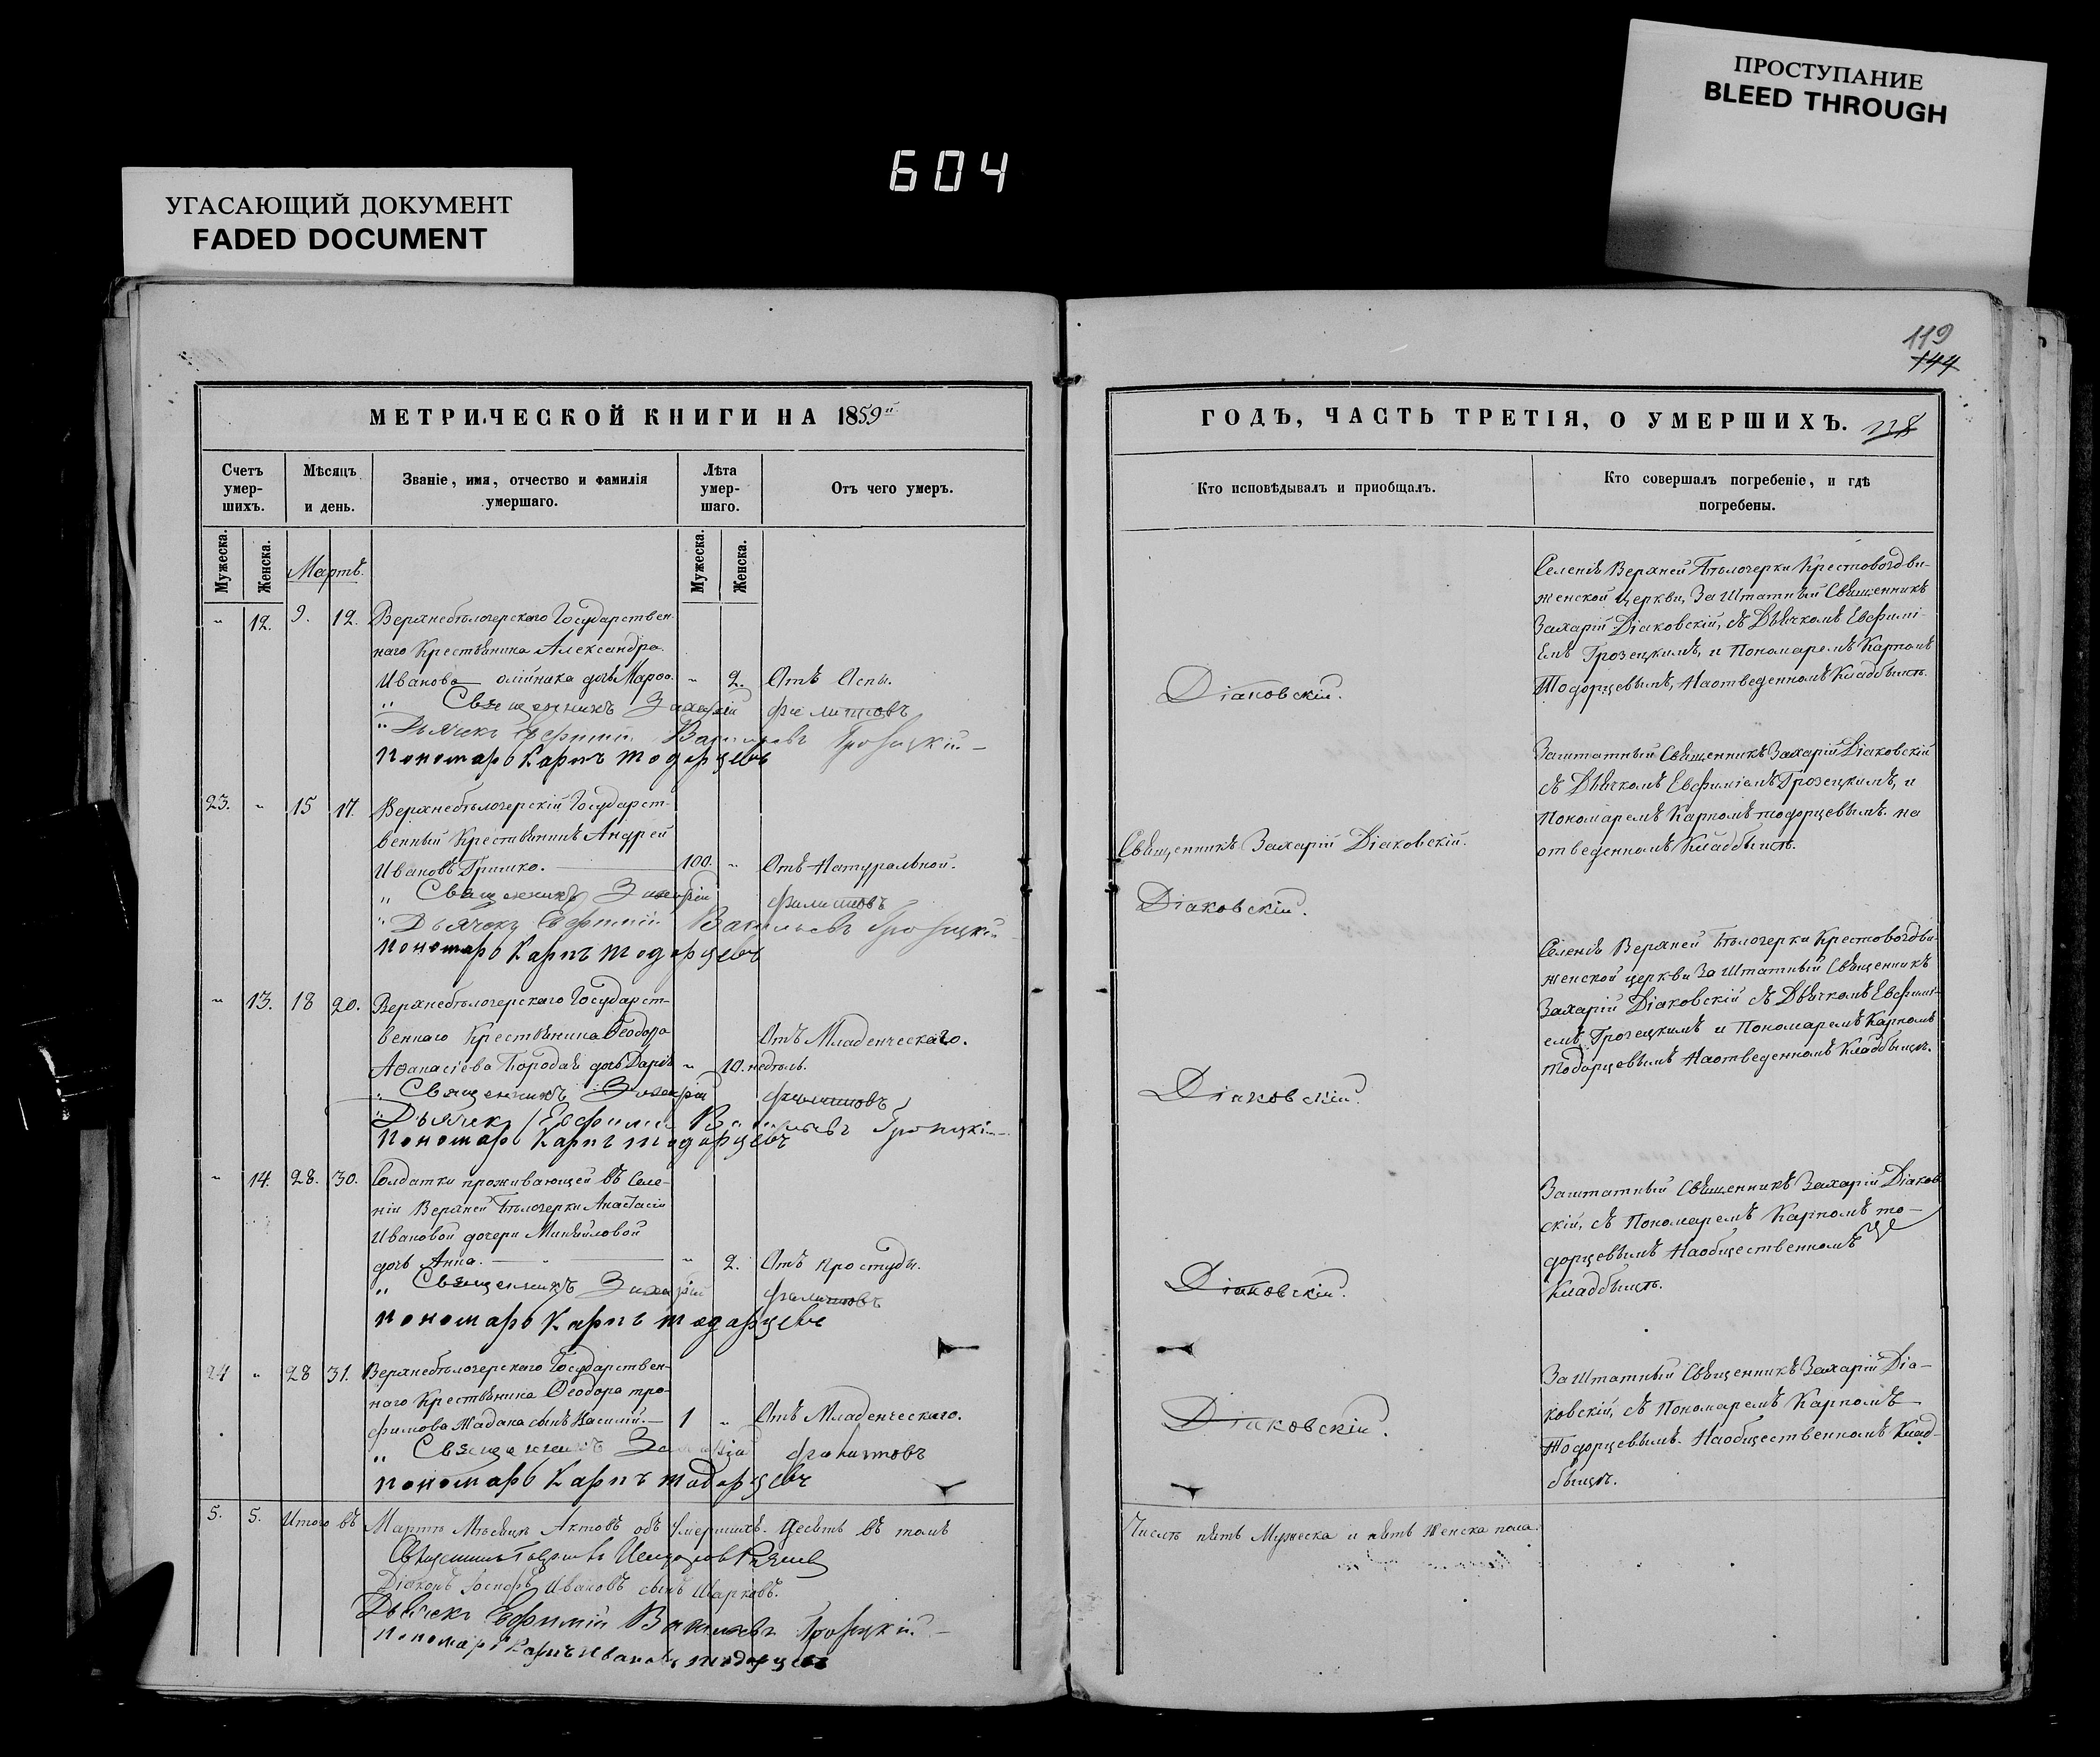 ПРОСТУПАНИЕ
BLEED THROUGH
604
УГАСАЮЩИЙ ДОКУМЕНТ
FADED DOCUMENT
119
144
МЕТРИЧЕСКОЙ КНИГИ НА 1859
Счетъ умер-
шихъ.
Мѣсяцъ
и день.
Званіе, имя, отчество и фамилія
умершаго.
Лѣта
умер-
шаго.
Отъ чего умеръ.
Мужеска.
Женска.
Мужеска.
Женска.
Мартъ.
12. 9. 12. Верхнебѣлозерскаго Государствен-
наго Крестьянина Александра
Иванова олійника дочь 2. Отъ Оспы.
Священникъ Захарій Филиповъ
Дьячекъ Евфимій Васильевъ
Пономарь Карпъ Тодорцевъ
23. 15 17. Верхнебѣлозерскій Государст-
венный Крестьянинъ Андрей
Ивановъ Гришко. 100. Отъ Натуральной.
Священникъ Захарій Филиповъ
Дьячекъ Евфимій Васильевъ
Пономарь Карпъ Тодорцевъ
13. 18 20. Верхнебѣлозерскаго Государст-
веннаго Крестьянина Ѳеодора
Отъ Младенческаго.
Аѳанасіева дочь Дарія 10. недѣль.
Священникъ Захарій Филиповъ
Дьячекъ Евфимій Васильевъ
Пономарь Карпъ Тодорцевъ
14. 28. 30. Солдатки проживающей въ Селе-
ніи Верхней Бѣлозерки Анастасіи
Ивановой дочери
дочь Анна. 2. Отъ простуды.
Священникъ Захарій Филиповъ
Пономарь Карпъ Тодорцевъ
24 28 31. Верхнебѣлозерскаго Государствен-
наго Крестьянина Ѳеодора Тро-
фимова Жадана сынъ Василій. 1 Отъ Младенческаго.
Священникъ Захарій Филиповъ
Пономарь Карпъ Тодорцевъ
5. 5. Итого въ Мартѣ Мѣсяцѣ Актовъ объ умершихъ. Десять въ томъ
Діаконъ Ивановъ сынъ Шарковъ.
Дьячекъ Евфимій Васильевъ
Пономарь Карпъ Ивановъ Тодорцевъ
ГОДЪ, ЧАСТЬ ТРЕТІЯ, О УМЕРШИХЪ. 118
Кто исповѣдывалъ и пріобщалъ.
Кто совершалъ погребеніе, и гдѣ
погребены.
Селенія Верхней Бѣлозерки Крестовоздви-
женской Церкви, За Штатный Священникъ
Захарій Діаковскій, съ Дьячкомъ Евфимі-
емъ Грозецкимъ, и Пономаремъ Карпомъ
Тодорцевымъ, На отведенномъ Кладбыщѣ.
Діаковскій.
Заштатный Священникъ Захарій Діаковскій
съ Дьячкомъ Евфиміемъ Грозецкимъ, и
Пономаремъ Карпомъ Тодорцевымъ. на
отведенномъ Кладбыщѣ.
Священникъ Захарій Діаковскій.
Діаковскій.
Селенія Верхней Бѣлозерки Крестовоздви-
женской церкви За Штатный Священникъ
Захарій Діаковскій съ Дьячкомъ Евфимі-
емъ Грозецкимъ и Пономаремъ Карпомъ
Тодорцевымъ На отведенномъ Кладбыщѣ.
Діаковскій.
Заштатный Священникъ Захарій Діаков-
скій, съ Пономаремъ Карпомъ То-
дорцевымъ На общественномъ
Кладбыщѣ.
Діаковскій.
За Штатный Священникъ Захарій Діа-
ковскій, съ Пономаремъ Карпомъ
Тодорцевымъ. На общественномъ Клад-
быщѣ.
Діаковскій.
Числѣ пять Мужеска и пять Женска пола.